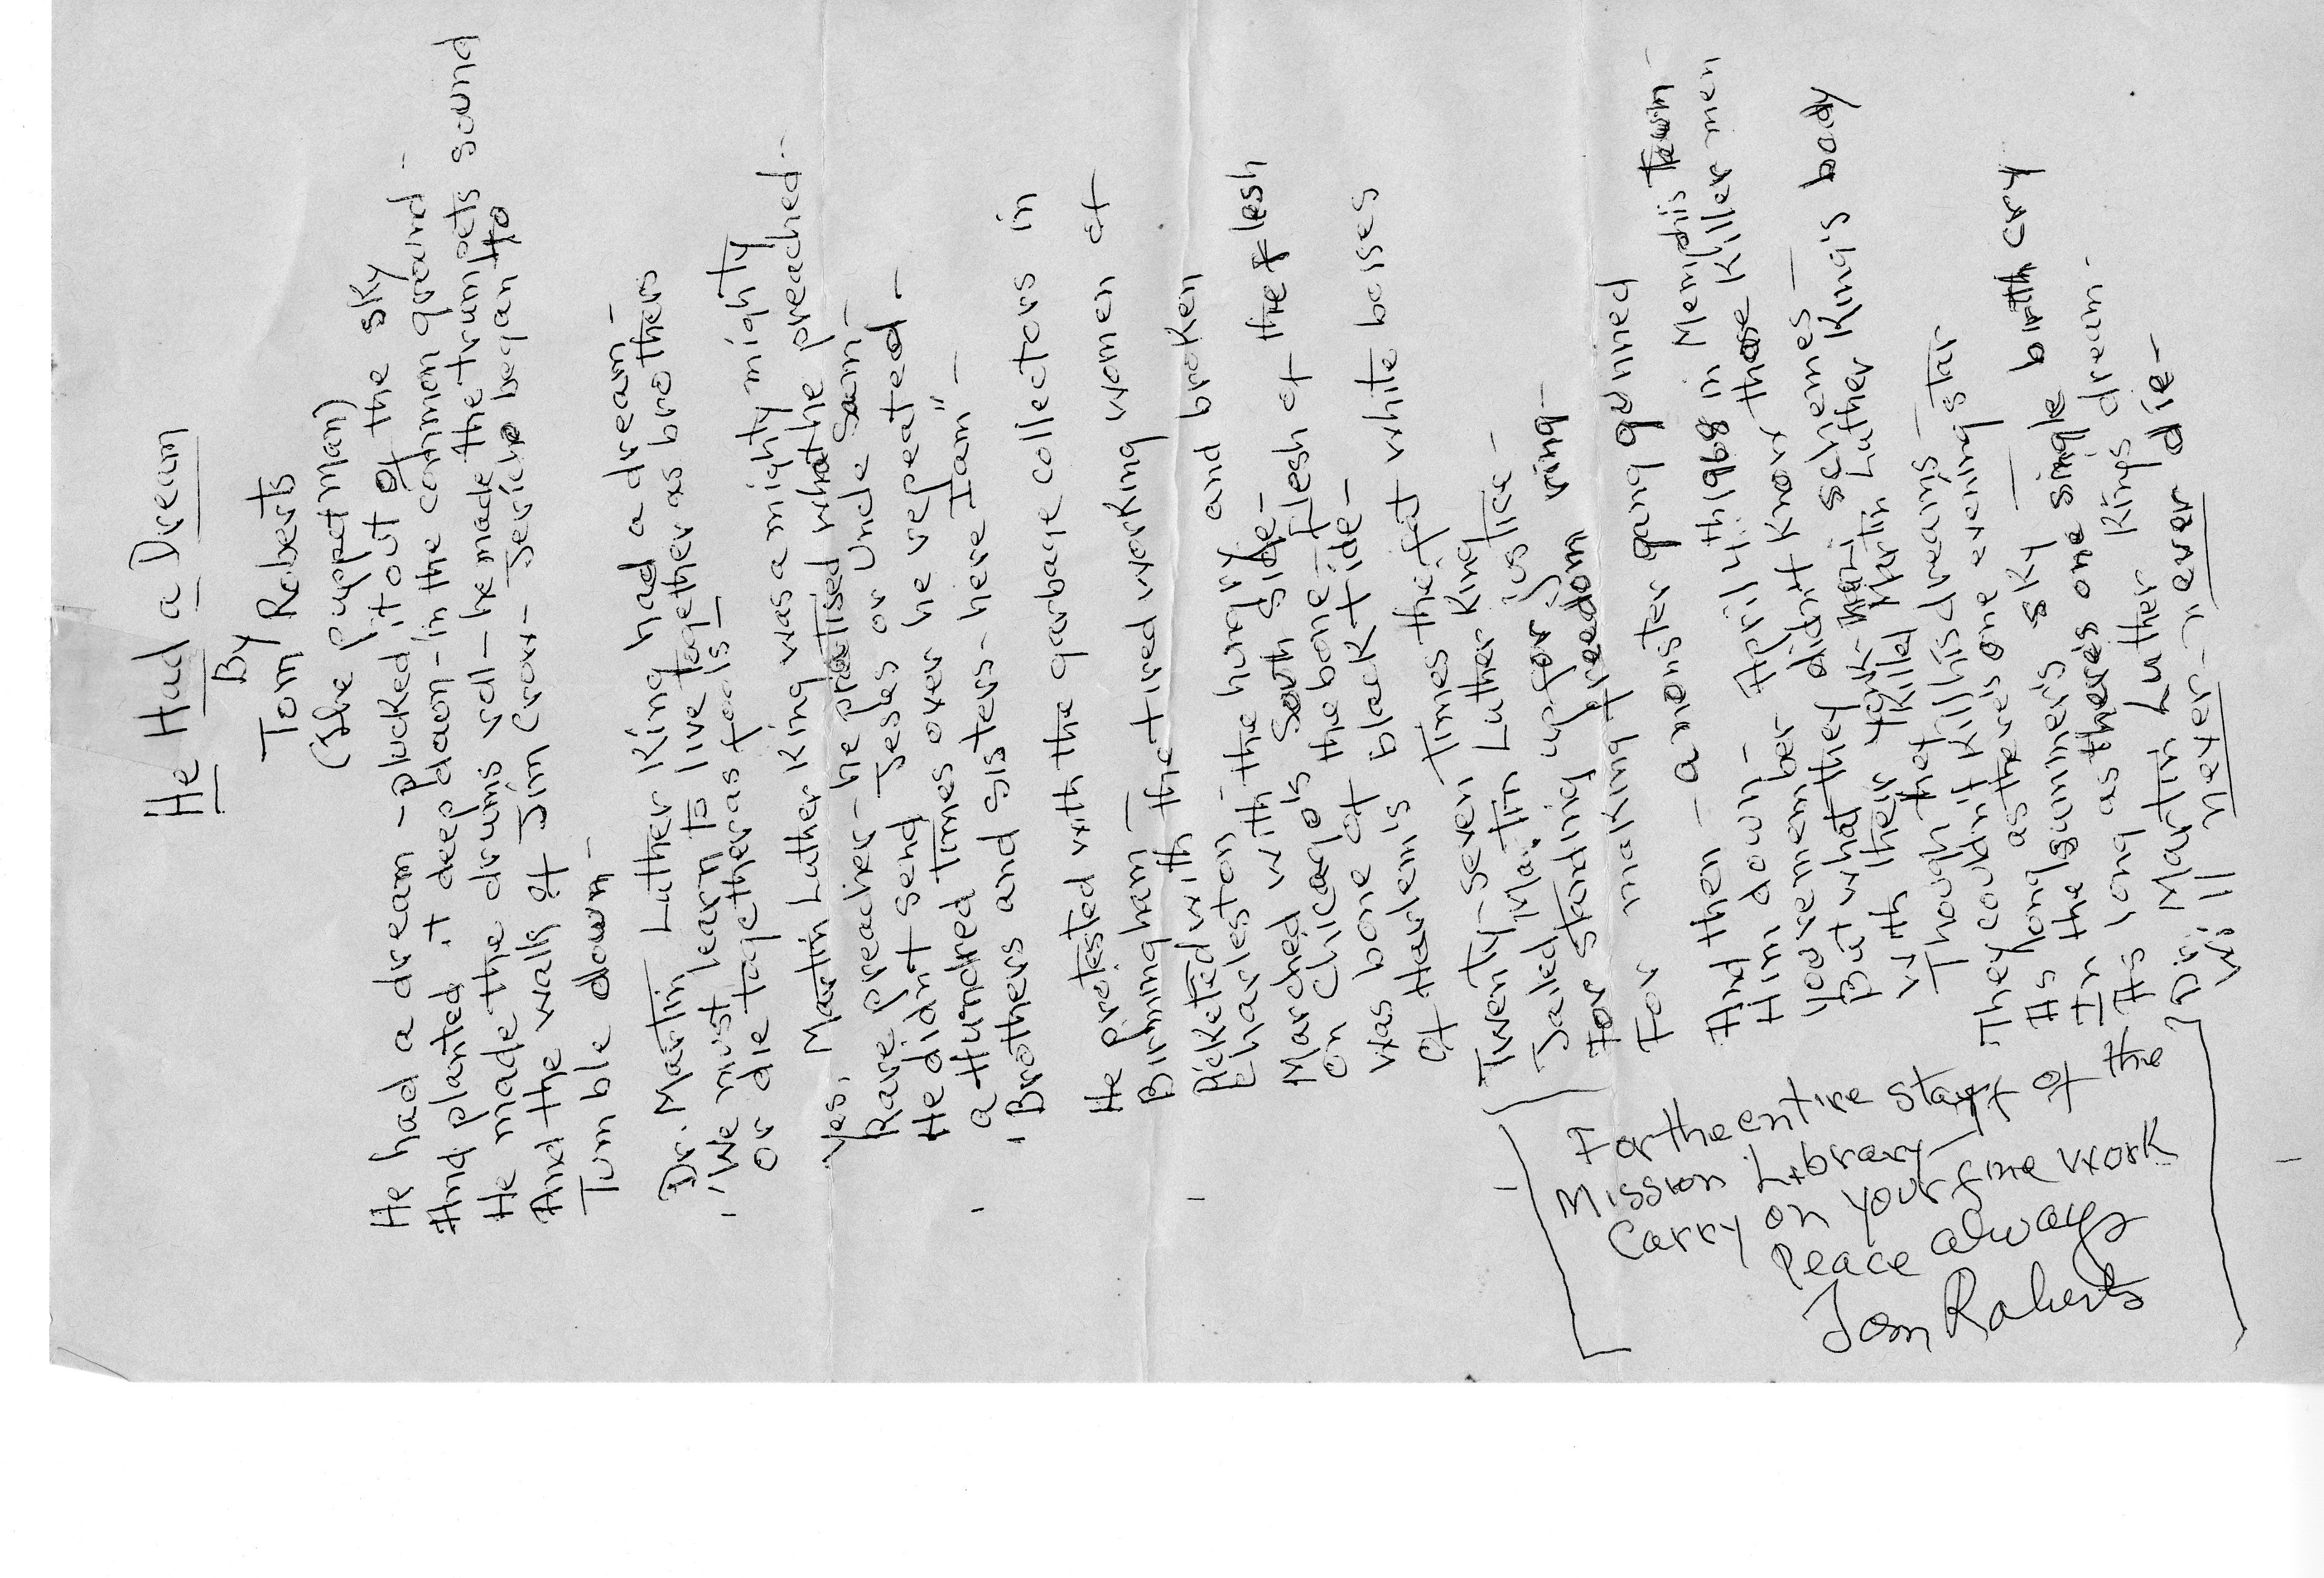 He Had a Dream
By
Tom Roberts
(The puppet man)
He had a dream - plucked it out of the sky
And planted it deep down - in the common ground -
He made the drums roll - he made the trumpets sound
And the walls of Jim Crow - Jericho began to
Tumble down -
Dr. Martin Luther King had a dream -
"We must learn to live together as brothers
or die together as fools -
Yes, Martin Luther King was a mighty mighty
Rare preacher - he practised what he preached -
He didnt send Jesus or Uncle Sam -
a Hundred times over he repeated -
"Brothers and sisters - here I am" -
He protested with the garbage collectors in
Birmingham -
Picketed with the tired working women of
Charleston -
Marched with the hungry and broken
on Chicago's South side -
Was bone of the bone - flesh of the flesh
Of Harlem's black tide -
Twenty-seven times the fat white boises
Jailed Martin Luther King
For standing up for justice -
For making freedom ring -
And then - a monster gang gunned
Him down - April 4th 1968 in Memphis town -
You remember -
But what they didnt know those killer men
With their schemes -
Though they killed Martin Luther King's body
They couldn't kill his dreams -
As long as there's one evening star
In the summer's sky -
As long as there's one single birth cry
Dr. Martin Luther Kings dream -
Will never - never die -
For the entire staff of the
Mission Library -
Carry on your fine work
Peace always
Tom Roberts